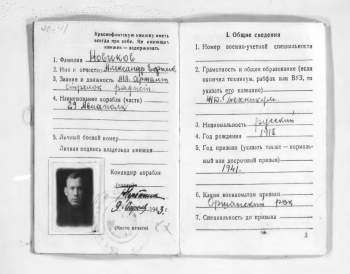 Красноармейскую книжку иметь
всегда при себе. Не имеющих
книжек — задерживать
1. Фамилия Новиков
2. Имя и отчество Александр
3. Звание и должность Мл. Сержант
стрелок радист
4. Наименование корабля (части)
29 Авиаполк
5. Личный боевой номер
Личная подпись владельца книжки
Командир корабля
(Место печати)
I. Общие сведения
1. Номер военно-учетной специальности
2. Грамотность и общее образование (если
окончил техникум, рабфак или ВУЗ, то
указать его название)
3. Национальность русский
4. Год рождения 1918
5. Год призыва (указать также — нормаль-
ный или досрочный призыв)
1941.
6. Каким военкоматом призван
7. Специальность до призыва
3